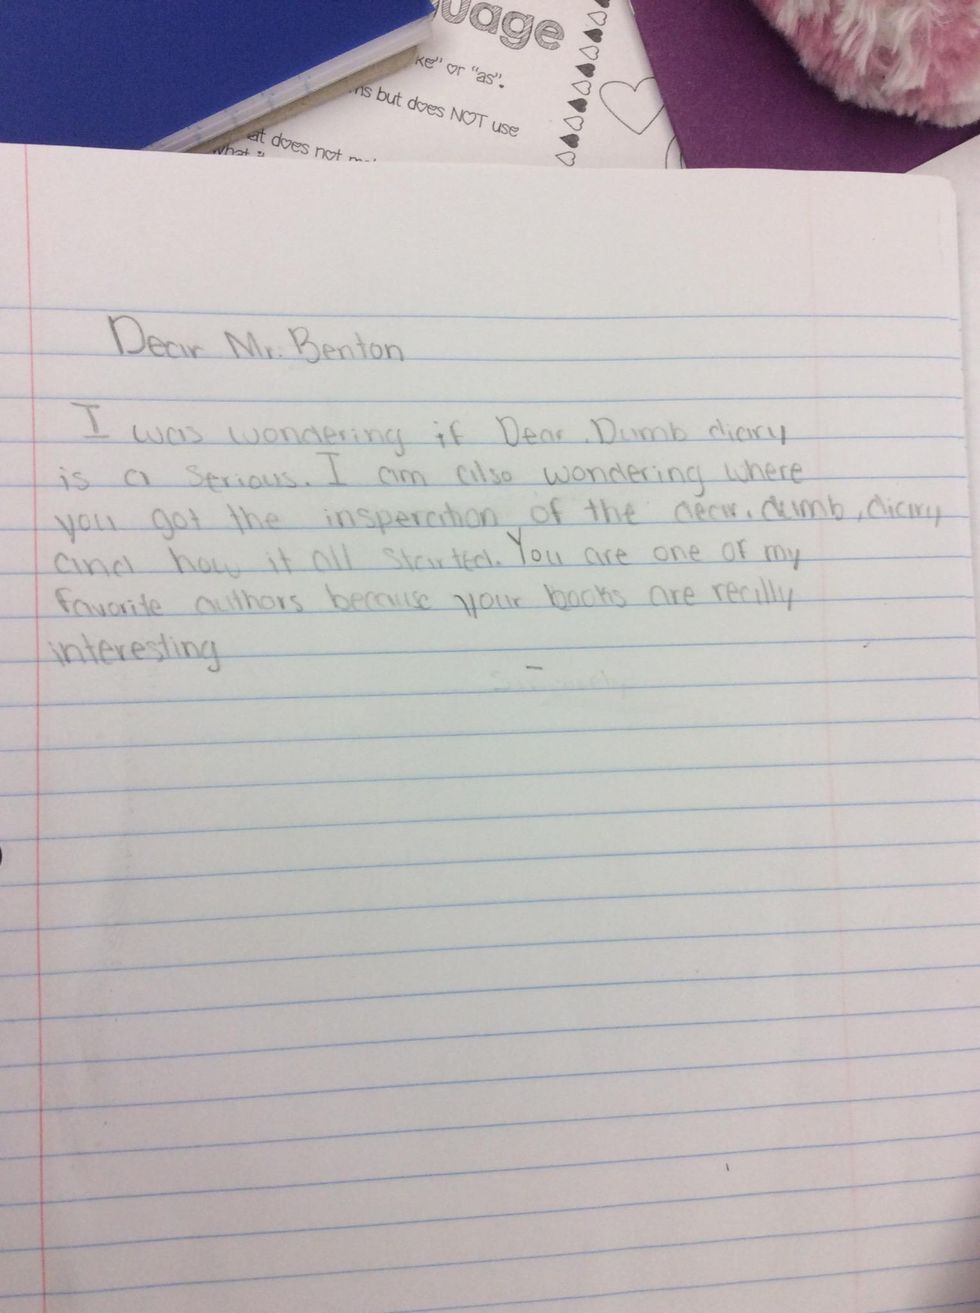 uage
ke" or "as".
ns but does NOT use
at does not
what
Dear Mr. Benton
I was wondering if Dear.Dumb diary
is a serious. I am also wondering where
you got the insperation of the dear.dumb,diary
and how it all started. You are one of my
favorite authors because your books are really
interesting